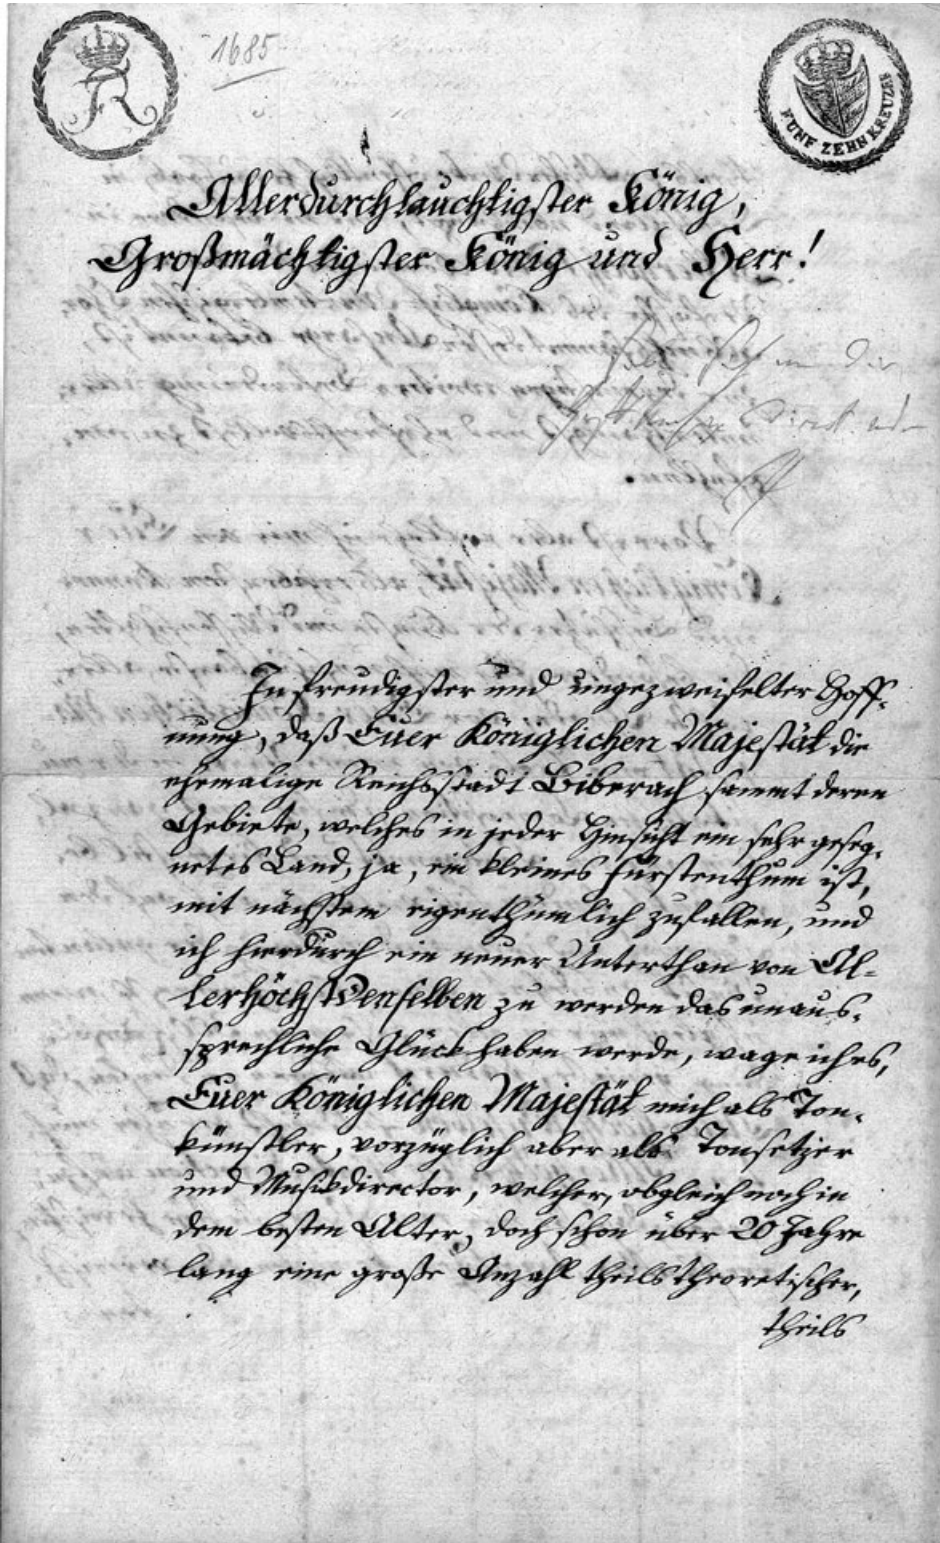 FR
1685
FÜNF ZEHN KREUZER
Allerdurchlauchtigster König,
Großmächtigster König und Herr!
In freudigster und ungezweifelter Hoff-
nung, daß Euer Königlichen Majestät die
ehemalige Reichsstadt Biberach sammt deren
Gebiete, welches in jeder Hinsicht ein sehr geseg-
netes Land, ja, ein kleines Fürstenthum ist,
mit nächstem eigenthümlich zufallen, und
ich hierdurch ein neuer Unterthan von Al-
lerhöchstdenselben zu werden das unaus-
sprechliche Glück haben werde, wage ich es,
Euer Königlichen Majestät mich als Ton-
künstler, vorzüglich aber als Tonsetzer
und Musikdirector, welcher, obgleich noch in
dem besten Alter, doch schon über 20 Jahre
lang eine große Anzahl theils theoretischer,
theils